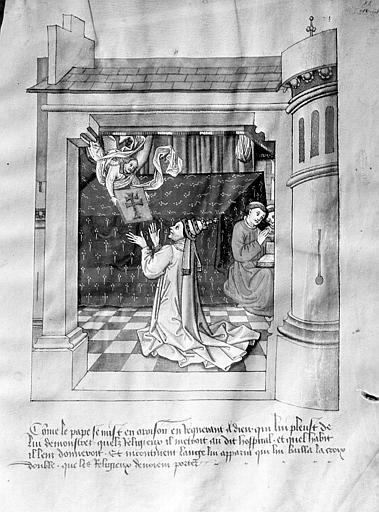 Cõme le pape se mist en oroison en requerant a dieu qui lui pleust de
lui demonstrer quelz religieux il mettroit au dit hospital et quel habit
il leur donneroit . Et incontinent lange lui apparut qui lui bailla la croix
double . que les Religieux devoient porter